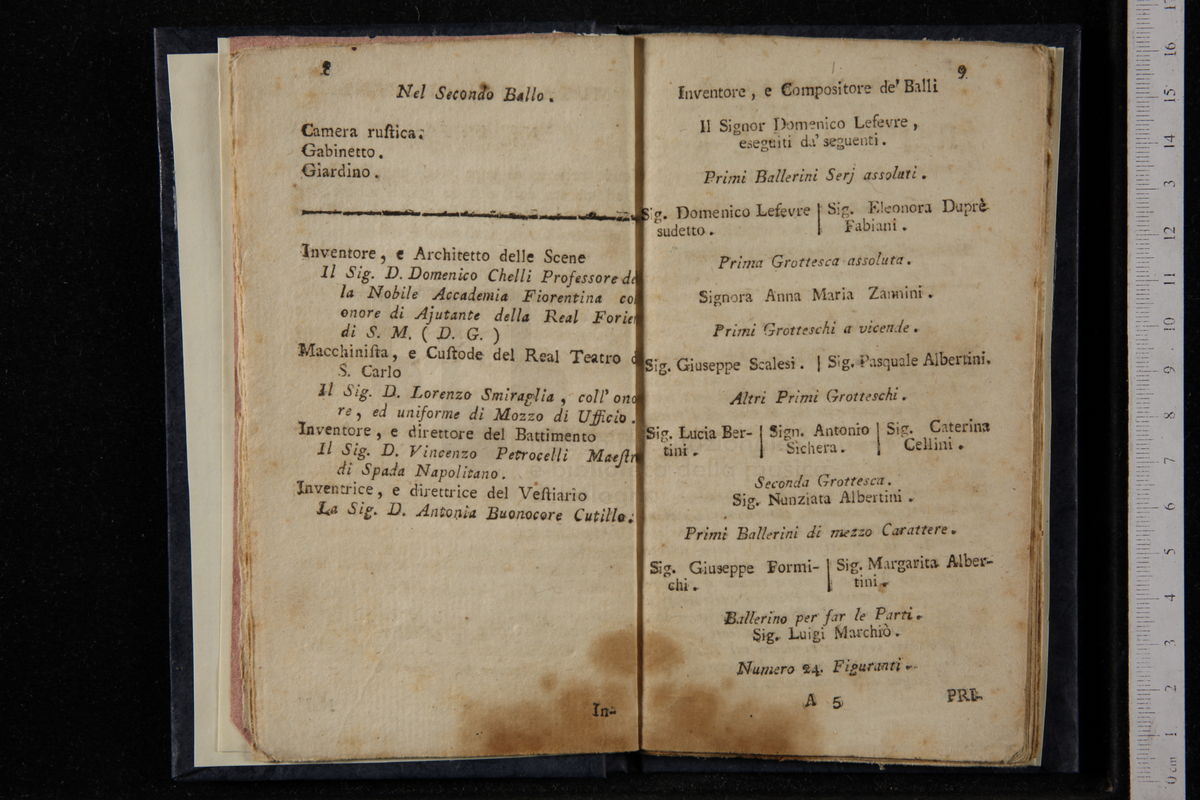 8
Nel Secondo Ballo.
Camera ruſtica:
Gabinetto.
Giardino.
Inventore, e Architetto delle Scene
Il Sig. D. Domenico Chelli Professore de
la Nobile Accademia Fiorentina co
onore di Ajutante della Real Forie
di S. M. ( D. G. )
Macchiniſta, e Cuſtode del Real Teatro d
S. Carlo
Il Sig. D. Lorenzo Smiraglia, coll' ono
re, ed uniforme di Mozzo di Ufficio.
Inventore, e direttore del Battimento
Il Sig. D. Vincenzo Petrocelli Maeſtr
di Spada Napolitano.
Inventrice, e direttrice del Veſtiario
La Sig. D. Antonia Buonocore Cutillo.
In-
9
Inventore, e Compositore de' Balli
Il Signor Domenico Lefevre,
eseguiti da' seguenti.
Primi Ballerini Serj assoluti.
Sig. Domenico Lefevre | Sig. Eleonora Duprè
sudetto. | Fabiani.
Prima Grottesca assoluta.
Signora Anna Maria Zannini.
Primi Grotteschi a vicende.
Sig. Giuseppe Scalesi. | Sig. Pasquale Albertini.
Altri Primi Grotteschi.
Sig. Lucia Ber- | Sign. Antonio | Sig. Caterina
tini. | Sichera. | Cellini.
Seconda Grottesca.
Sig. Nunziata Albertini.
Primi Ballerini di mezzo Carattere.
Sig. Giuseppe Formi- | Sig. Margarita Alber-
chi. | tini.
Ballerino per far le Parti.
Sig. Luigi Marchiò.
Numero 24. Figuranti.
A 5 PRI-
0 cm 1 2 3 4 5 6 7 8 9 10 11 12 13 14 15 16 17